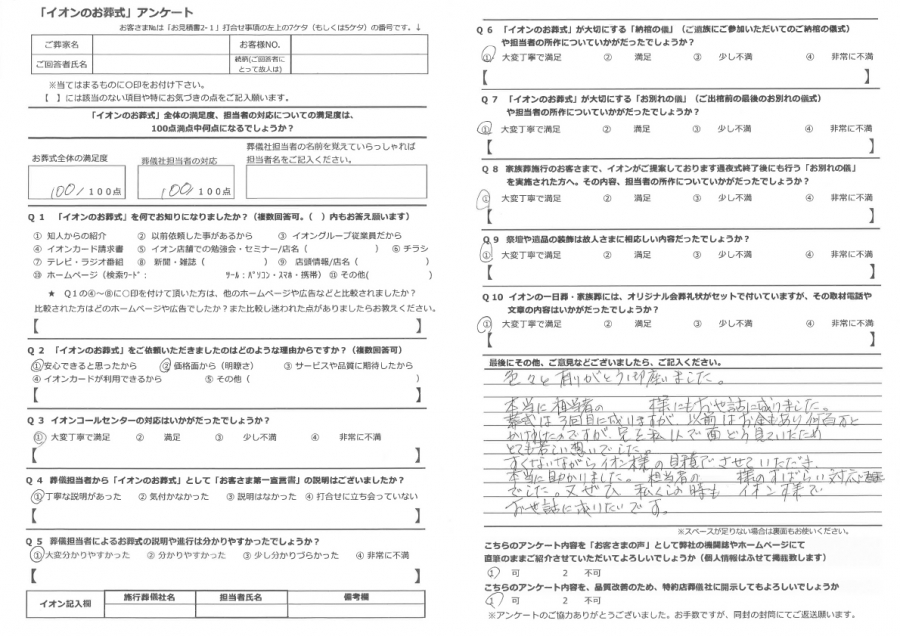 「イオンのお葬式」アンケート
お客さま№は「お見積書2-1」打合せ事項の左上の7ケタ（もしくは5ケタ）の番号です。↓
ご葬家名 お客様NO.
ご回答者氏名 続柄(ご回答者に
とって故人は)
※当てはまるものに○印をお付け下さい。
【 】には該当のない項目や特にお気づきの点をご記入願います。
「イオンのお葬式」全体の満足度、担当者の対応についての満足度は、
100点満点中何点になるでしょうか？
お葬式全体の満足度 葬儀社担当者の対応 葬儀社担当者の名前を覚えていらっしゃれば
担当者名をご記入ください。
100/100点 100/100点
Q 1 「イオンのお葬式」を何でお知りになりましたか？（複数回答可。( )内もお答え願います）
① 知人からの紹介 ② 以前依頼した事があるから ③ イオングループ従業員だから
④ イオンカード請求書 ⑤ イオン店舗での勉強会・セミナー/店名（ ） ⑥ チラシ
⑦ テレビ・ラジオ番組 ⑧ 新聞・雑誌（ ） ⑨ 店頭情報/店名（ ）
⑩ ホームページ（検索ﾜｰﾄﾞ： ﾂｰﾙ：ﾊﾟｿｺﾝ・ｽﾏﾎ・携帯） ⑪ その他( )
★ Q1の④～⑧に○印を付けて頂いた方は、他のホームページや広告などと比較されましたか？
比較された方はどのホームページや広告でしたか？また比較し迷われた点がありましたらお教えください。
【 】
Q 2 「イオンのお葬式」をご依頼いただきましたのはどのような理由からですか？（複数回答可）
①安心できると思ったから ②価格面から（明瞭さ） ③ サービスや品質に期待したから
④ イオンカードが利用できるから ⑤ その他（ ）
【 】
Q 3 イオンコールセンターの対応はいかがだったでしょうか？
① 大変丁寧で満足 ② 満足 ③ 少し不満 ④ 非常に不満
【 】
Q 4 葬儀担当者から「イオンのお葬式」として「お客さま第一宣言書」の説明はございましたか？
①丁寧な説明があった ② 気付かなかった ③ 説明はなかった ④ 打合せに立ち会っていない
【 】
Q 5 葬儀担当者によるお葬式の説明や進行は分かりやすかったでしょうか？
①大変分かりやすかった ② 分かりやすかった ③ 少し分かりづらかった ④ 非常に不満
【 】
イオン記入欄 施行葬儀社名 担当者氏名 備考欄
Q 6 「イオンのお葬式」が大切にする「納棺の儀」（ご遺族にご参加いただいてのご納棺の儀式）
や担当者の所作についていかがだったでしょうか？
① 大変丁寧で満足 ② 満足 ③ 少し不満 ④ 非常に不満
【 】
Q 7 「イオンのお葬式」が大切にする「お別れの儀」（ご出棺前の最後のお別れの儀式）
や担当者の所作についていかがだったでしょうか？
① 大変丁寧で満足 ② 満足 ③ 少し不満 ④ 非常に不満
【 】
Q 8 家族葬施行のお客さまで、イオンがご提案しております通夜式終了後にも行う「お別れの儀」
を実施された方へ。その内容、担当者の所作についていかがだったでしょうか？
① 大変丁寧で満足 ② 満足 ③ 少し不満 ④ 非常に不満
【 】
Q 9 祭壇や遺品の装飾は故人さまに相応しい内容だったでしょうか？
① 大変丁寧で満足 ② 満足 ③ 少し不満 ④ 非常に不満
【 】
Q 10 イオンの一日葬・家族葬には、オリジナル会葬礼状がセットで付いていますが、その取材電話や
文章の内容はいかがだったでしょうか？
① 大変丁寧で満足 ② 満足 ③ 少し不満 ④ 非常に不満
【 】
最後にその他、ご意見などございましたら、ご記入ください。
色々と有りがとう御座いました。
本当に担当者の 様にもお世話に成りました。
葬式は3回目に成りますが、以前はお金もあり何百万と
かけれたのですが、兄を私1人で面どう見ていたため
とても苦しい想いでした。
すくないながらイオン様の見積でさせていただき、
本当に助かりました。担当者の 様のすばらい対応
でした。又ぜひ 私くしの時も イオン様で
お世話に成りたいです。
※スペースが足りない場合は裏面もお使いください。
こちらのアンケート内容を「お客さまの声」として弊社の機関誌やホームページにて
直筆のままご紹介させていただいてよろしいでしょうか（個人情報はふせて掲載致します）
1 可 2 不可
こちらのアンケート内容を、品質改善のため、特約店葬儀社に開示してもよろしいでしょうか
1 可 2 不可
※アンケートのご協力ありがとうございました。お手数ですが、同封の封筒にてご返送願います。